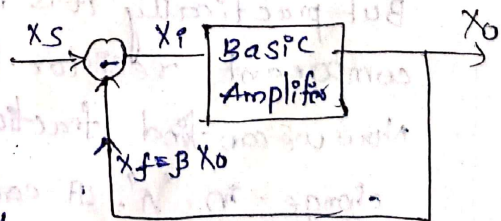 Xs
Xi
Basic
Amplifier
Xo
-
Xf = β Xo